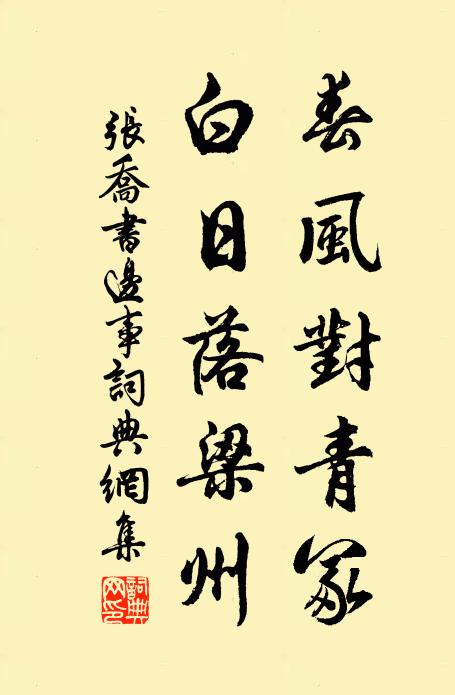 春風對青冢
白日落梁州
張喬書邊事詞典網集
詞典网印